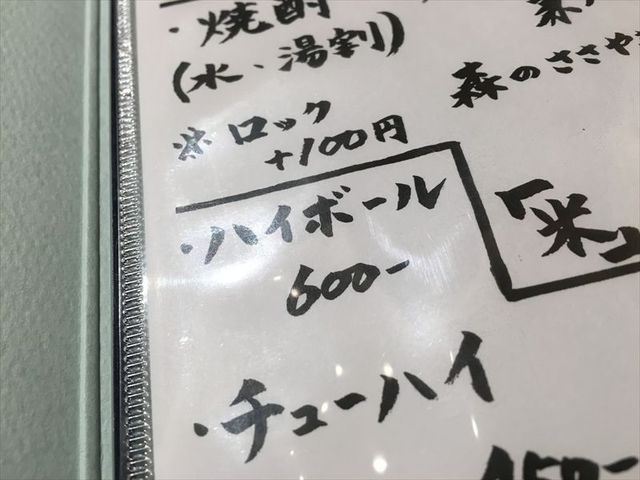 ・焼酎
(水・湯割)
※ロック
+100円
森のささや
・ハイボール
600-
「米」
・チューハイ